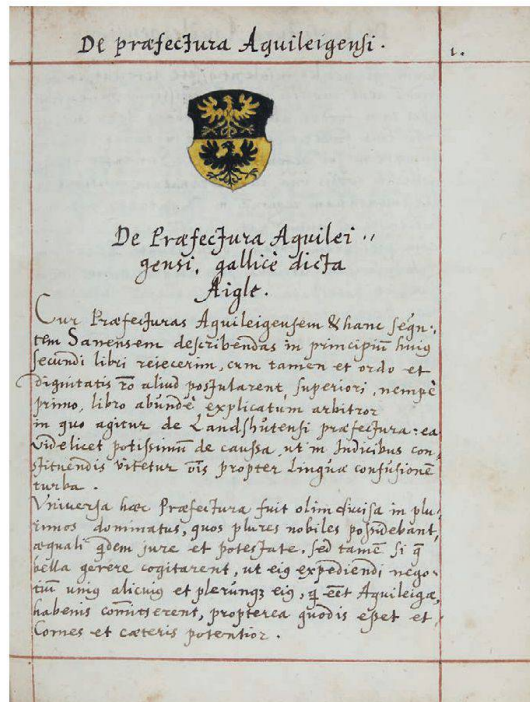 De præfectura Aquileigensi.
1.
De Præfectura Aquilei„
gensi, gallicè dicta
Aigle.
Cur Præfecturas Aquileigensem & hanc seqũ-
tem Sanensem describendas in principiũ huiꝰ
secundi libri reiecerim, cum tamen et ordo et
dignitatis ro aliud postularent, superiori, nempè
primo, libro abundè explicatum arbitror
in quo agitur de Landshutensi præfectura: ea
videlicet potissimũ de caussa, ut in Indicibus con-
stituendis vitetur ois propter Linguæ confusionẽ
turba.
Vniversa hæc Præfectura fuit olim divisa in plu-
rimos dominatus, quos plures nobiles possidebant,
æquali qdem jure et potestate. sed tamẽ si q
bella gerere cogitarent, ut eiꝰ expediendi nego-
tiũ uniꝰ alicuiꝰ et plerunqꝫ eiꝰ, q eẽt Aquileigæ,
habenis comitterent, propterea quod is esset et
Comes et cæteris potentior.